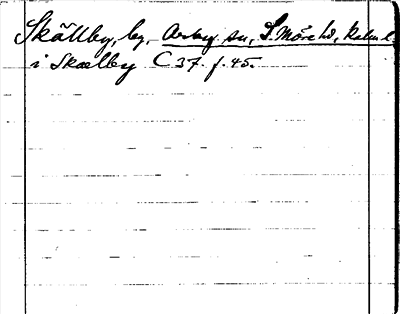 Skällby, by, Arby sn, S. Möre hd, Kalm l.
i Skælby C 37. f. 45.